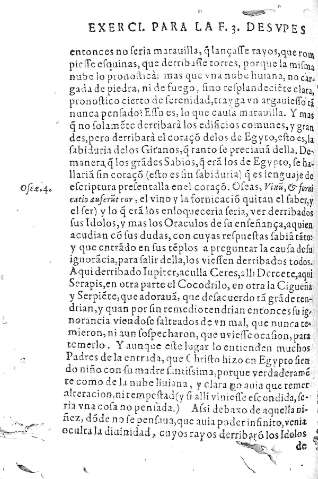 EXERCI. PARA LA F. 3. DESVPES
entonces no seria marauilla, q̃ lançasse rayos, que rom
piesse esquinas, que derribasse torres, porque la misma
nube lo pronostica: mas que vna nube liuiana, no car-
gada de piedra, ni de fuego, sino resplandeciẽte clara,
pronostico cierto de serenidad, trayga vn arguiesso tã
nunca pensado? Esso es, lo que causa marauilla. Y mas
q̃ no solamẽte derribarà los edificios comunes, y gran
des, pero derribarà el coraçõ delos de Egypto, esto es, la
sabiduria delos Gitanos, q̃ tanto se preciauã della. De-
manera, q̃ los grãdes Sabios, q̃ erã los de Egypto, se ha-
llariã sin coraçõ (esto es sin sabiduria) q̃ es lenguaje de
Oseæ. 4.
escriptura presentalla en el coraçõ. Oseas, Vinũ, & forni
catio auferũt cor, el vino y la fornicació quitan el saber, y
el ser) y lo q̃ erà los enloqueceria seria, ver derribados
sus Idolos, y mas los Oraculos de su enseñança, aquien
acudian cõ sus dudas, con cuyas respuestas sabiã tãto:
y que entrãdo en sus tẽplos a preguntar la causa de su
ignorãcia, para salir della, los viessen derribados todos.
Aqui derribado Iupiter, aculla Ceres, alli Dercete, aqui
Serapis, en otra parte el Cocodrilo, en otra la Cigueña
y Serpiẽte, que adorauã, que desacuerdo tã grãde ten-
drian, y quan por sin remedio tendrian entonces su ig-
norancia viendose salteados de vn mal, que nunca te-
mieron, ni aun sospecharon, que vuiesse ocasion, para
temerlo. Y aunque este lugar lo entienden muchos
Padres de la entrada, que Christo hizo en Egypto sien
do niño con su madre santissima, porque verdaderamẽ
te como de la nube liuiana, y clara no auia que temer
alteracion, ni tempestad (y si alli viniesse escondida, se-
ria vna cosa no pensada.) Assi debaxo de aquella ni-
ñez, dõde no se pensaua, que auia poder infinito, venia
oculta la diuinidad, cuyos rayos derribarõ los Idolos
de